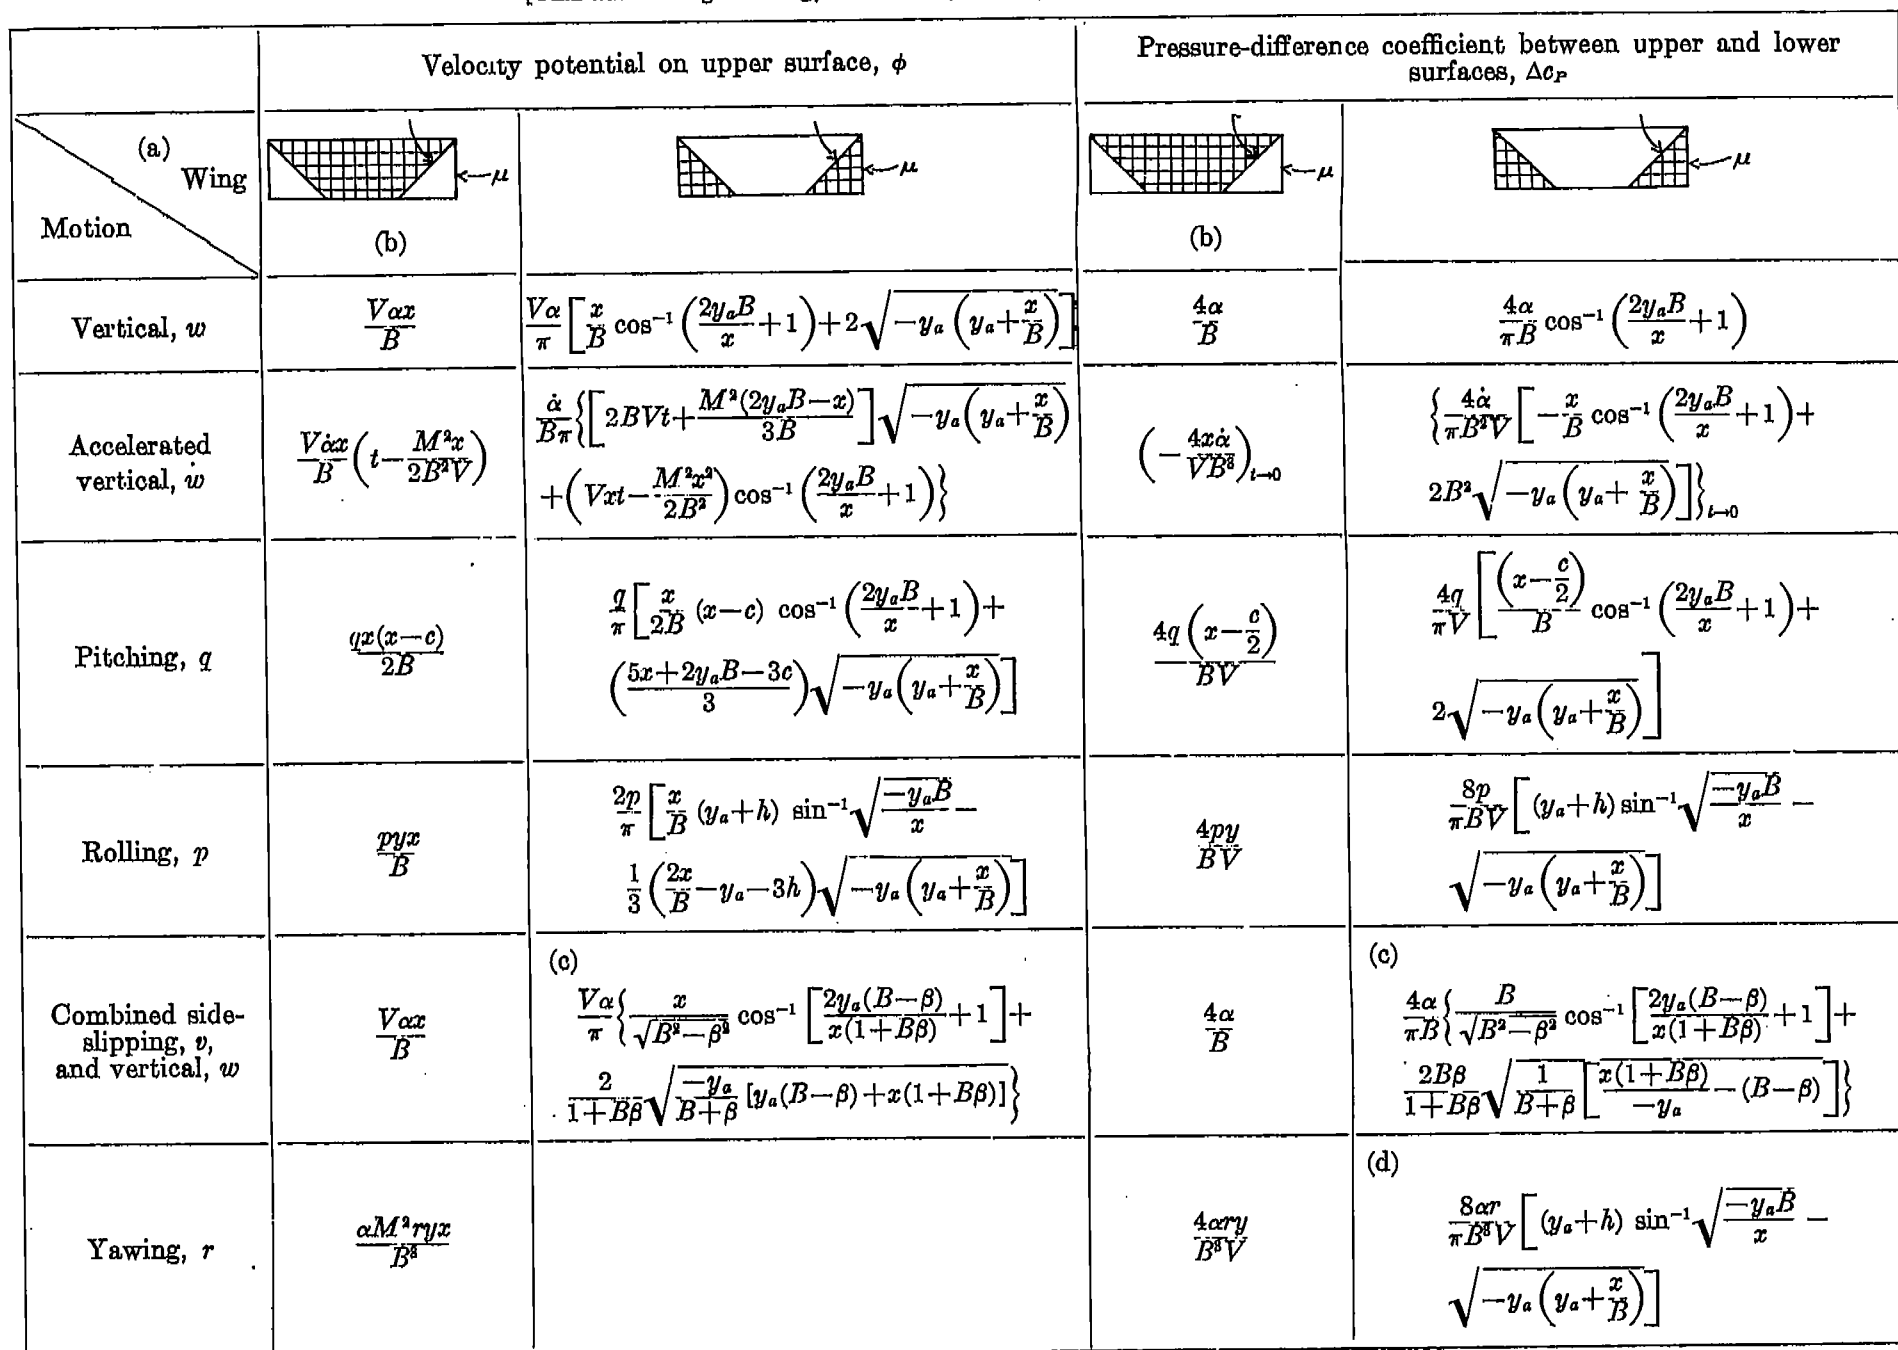 Velocity potential on upper surface, ϕ
Pressure-difference coefficient between upper and lower
surfaces, Δc_P
(a)
Wing
Motion
μ
(b)
μ
μ
(b)
μ
Vertical, w
\frac{Vαx}{B}
\frac{Vα}{π}[\frac{x}{B} cos⁻¹(\frac{2y_aB}{x}+1)+2\sqrt{-y_a(y_a+\frac{x}{B})}]
\frac{4α}{B}
\frac{4α}{πB} cos⁻¹(\frac{2y_aB}{x}+1)
Accelerated
vertical, ẇ
\frac{Vα̇x}{B}(t-\frac{M²x}{2B²V})
\frac{α̇}{Bπ}{[2BVt+\frac{M²(2y_aB-x)}{3B}]\sqrt{-y_a(y_a+\frac{x}{B})}
+(Vxt-\frac{M²x²}{2B²})cos⁻¹(\frac{2y_aB}{x}+1)}
(-\frac{4xα̇}{VB³})_{t→0}
{\frac{4α̇}{πB²V}[-\frac{x}{B} cos⁻¹(\frac{2y_aB}{x}+1)+
2B²\sqrt{-y_a(y_a+\frac{x}{B})}]}_{t→0}
Pitching, q
\frac{qx(x-c)}{2B}
\frac{q}{π}[\frac{x}{2B}(x-c) cos⁻¹(\frac{2y_aB}{x}+1)+
(\frac{5x+2y_aB-3c}{3})\sqrt{-y_a(y_a+\frac{x}{B})}]
\frac{4q(x-\frac{c}{2})}{BV}
\frac{4q}{πV}[\frac{(x-\frac{c}{2})}{B} cos⁻¹(\frac{2y_aB}{x}+1)+
2\sqrt{-y_a(y_a+\frac{x}{B})}]
Rolling, p
\frac{pyx}{B}
\frac{2p}{π}[\frac{x}{B}(y_a+h) sin⁻¹\sqrt{\frac{-y_aB}{x}}-
\frac{1}{3}(\frac{2x}{B}-y_a-3h)\sqrt{-y_a(y_a+\frac{x}{B})}]
\frac{4py}{BV}
\frac{8p}{πBV}[(y_a+h) sin⁻¹\sqrt{\frac{-y_aB}{x}}-
\sqrt{-y_a(y_a+\frac{x}{B})}]
Combined side-
slipping, v,
and vertical, w
\frac{Vαx}{B}
(c)
\frac{Vα}{π}{\frac{x}{\sqrt{B²-β²}} cos⁻¹[\frac{2y_a(B-β)}{x(1+Bβ)}+1]+
\frac{2}{1+Bβ}\sqrt{\frac{-y_a}{B+β}[y_a(B-β)+x(1+Bβ)]}}
\frac{4α}{B}
(c)
\frac{4α}{πB}{\frac{B}{\sqrt{B²-β²}} cos⁻¹[\frac{2y_a(B-β)}{x(1+Bβ)}+1]+
\frac{2Bβ}{1+Bβ}\sqrt{\frac{1}{B+β}[\frac{x(1+Bβ)}{-y_a}-(B-β)]}}
Yawing, r
\frac{αM²ryx}{B³}
\frac{4αry}{B³V}
(d)
\frac{8αr}{πB³V}[(y_a+h) sin⁻¹\sqrt{\frac{-y_aB}{x}}-
\sqrt{-y_a(y_a+\frac{x}{B})}]